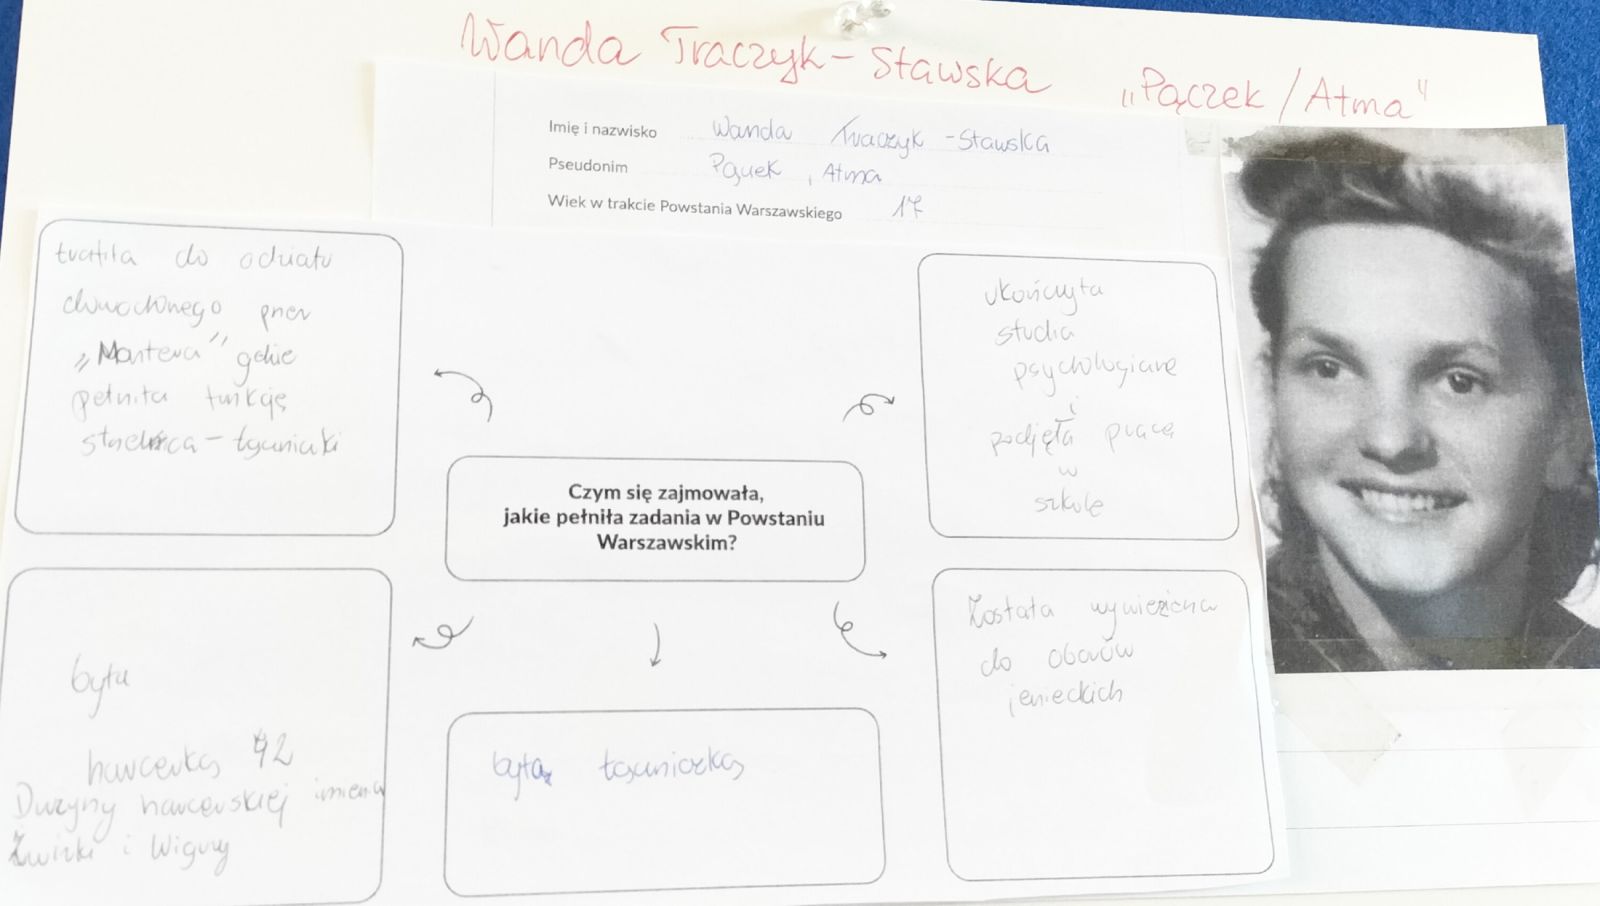 Wanda Traczyk-Stawska „Pączek/Atma"
Imię i nazwisko Wanda Traczyk-Stawska
Pseudonim Pączek, Atma
Wiek w trakcie Powstania Warszawskiego 17
trafiła do odziału
chwodnego przez
„Montera" gdzie
pełniła funkcję
strzelca - łączniczki
ukończyła
studia
psychologiczne
i
podjęła pracę
w
szkole
Czym się zajmowała,
jakie pełniła zadania w Powstaniu
Warszawskim?
była
harcerką 42
Drużyny harcerskiej imienia
Żwirki i Wigury
była łączniczką
Została wywieziona
do obozów
jenieckich